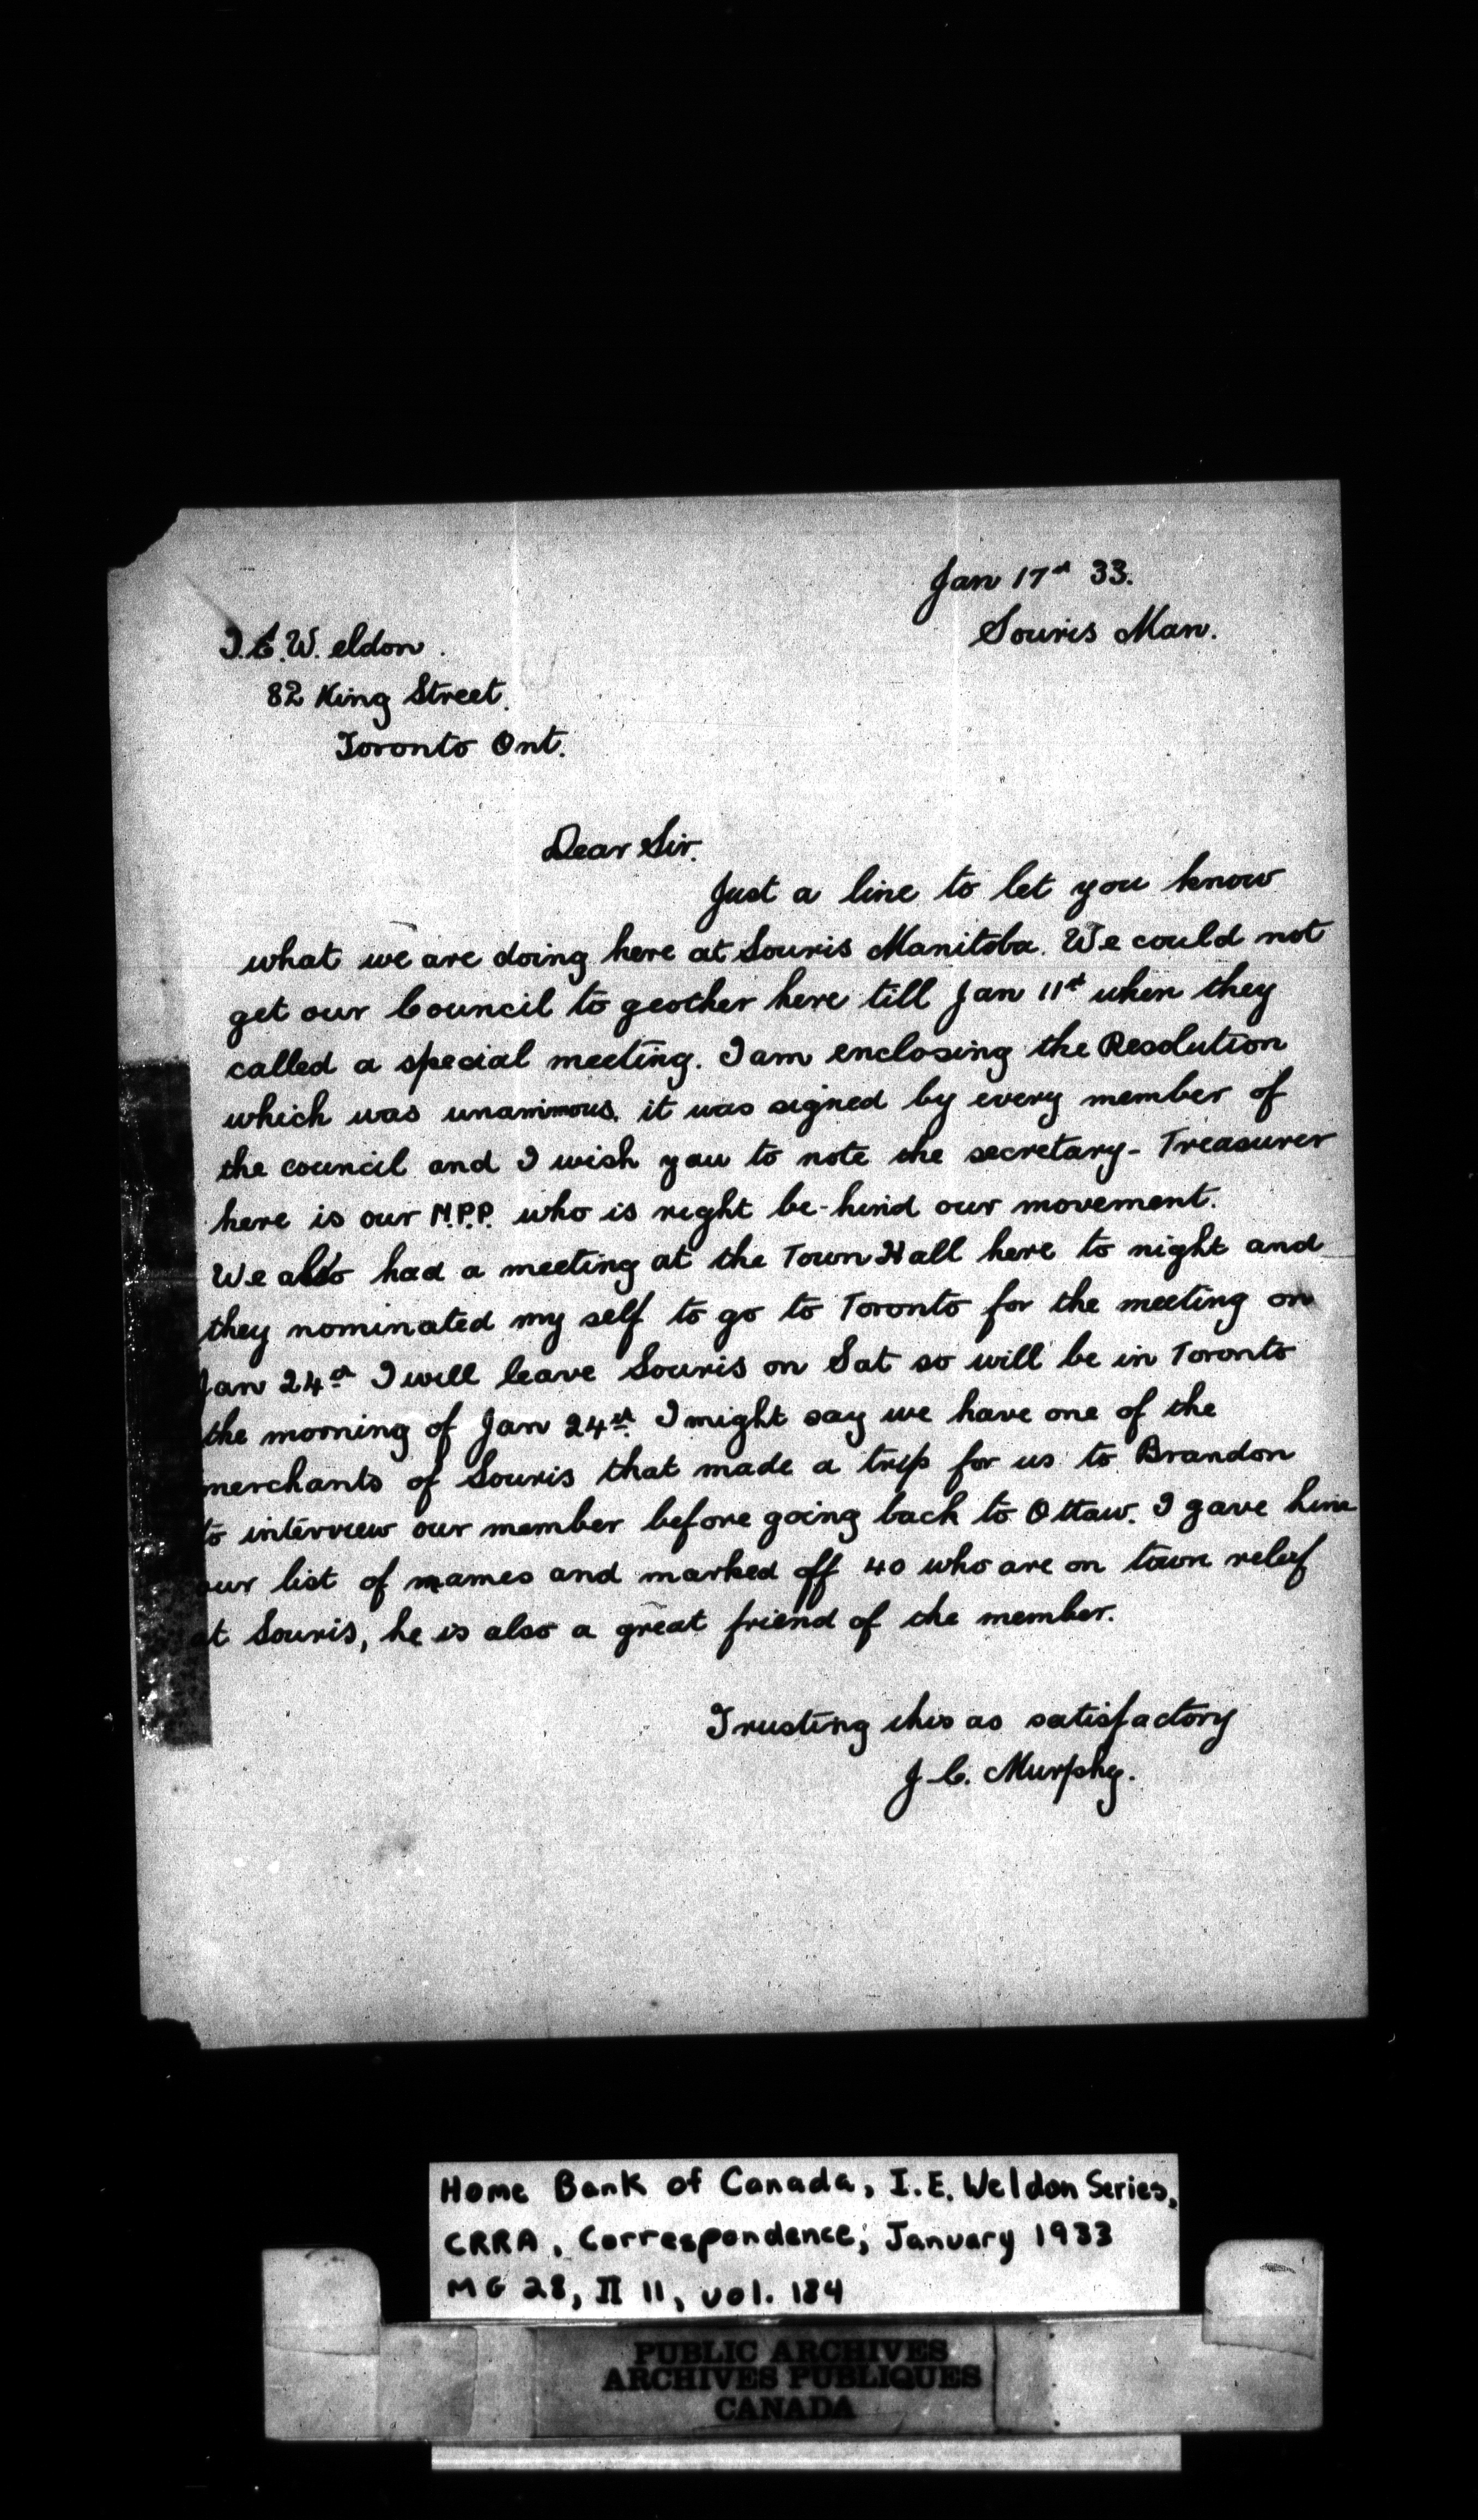 Jan 17st 33.
Souris Man.
I.E.W. eldon.
82 King Street.
Toronto Ont.
Dear Sir.
Just a line to let you know
what we are doing here at Souris Manitoba. We could not
get our Council to geother here till Jan 11st when they
called a special meeting. I am enclosing the Resolution
which was unanimous. it was signed by every member of
the council and I wish you to note the secretary-Treasurer
here is our M.P.P. who is right be-hind our movement.
We also had a meeting at the Town Hall here to night and
they nominated my self to go to Toronto for the meeting on
Jan 24st I will leave Souris on Sat so will be in Toronto
the morning of Jan 24st. I might say we have one of the
merchants of Souris that made a trip for us to Brandon
to interview our member before going back to Ottaw. I gave him
our list of names and marked off 40 who are on town relief
at Souris, he is also a great friend of the member.
Trusting this as satisfactory
J.C. Murphy.
Home Bank of Canada, I.E. Weldon Series,
CRRA, Correspondence, January 1933
MG 28, II 11, vol. 184
PUBLIC ARCHIVES
ARCHIVES PUBLIQUES
CANADA